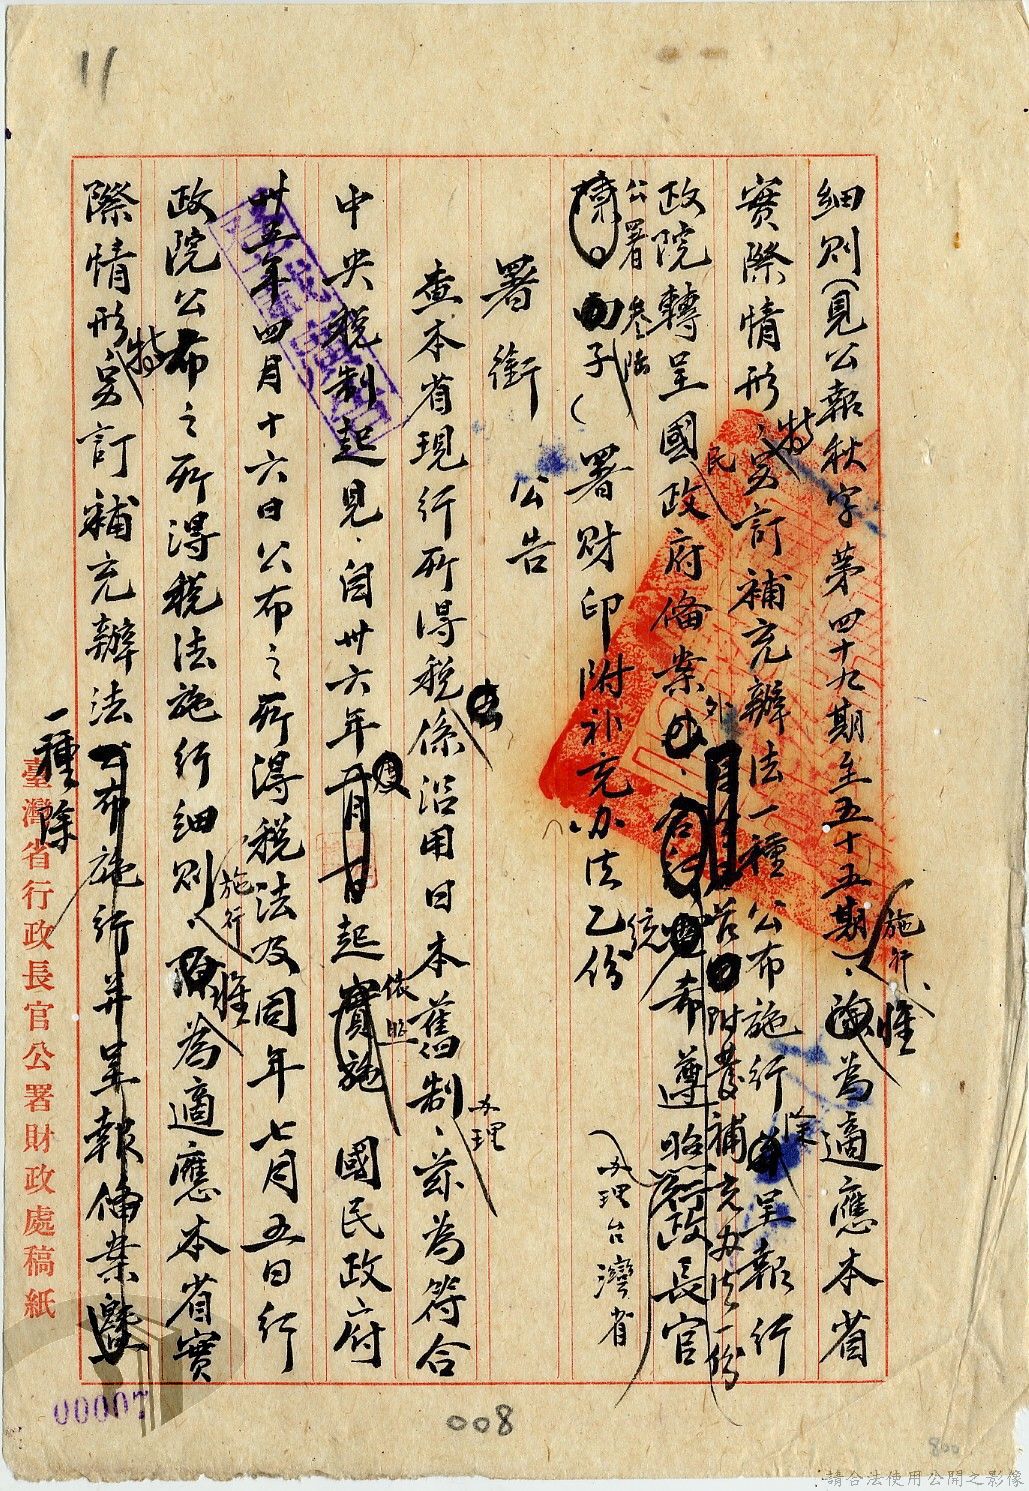 11
細則（見公報秋字第四十九期至五十五期）施行、惟為適應本省
實際情形、特另訂補充辦法一種公布施行除呈報行
政院轉呈國民政府備案外、合
茲附發補充办法一份
統希遵照
政長官
办理台灣省
公署叁陆
子（署財印附补充办法乙份
署銜 公告
查本省現行所得稅係沿用日本舊制办理、茲為符合
中央稅制起見、自卅六年度起依照國民政府
卅五年四月十六日公布之所得稅法及同年七月五日行
政院公布之所得稅法施行細則、施行惟為適應本省實
際情形、特另訂補充辦法一種除
公布施行并呈報備案暨
臺灣省行政長官公署財政處稿紙
00007
008
800
請合法使用公開之影像